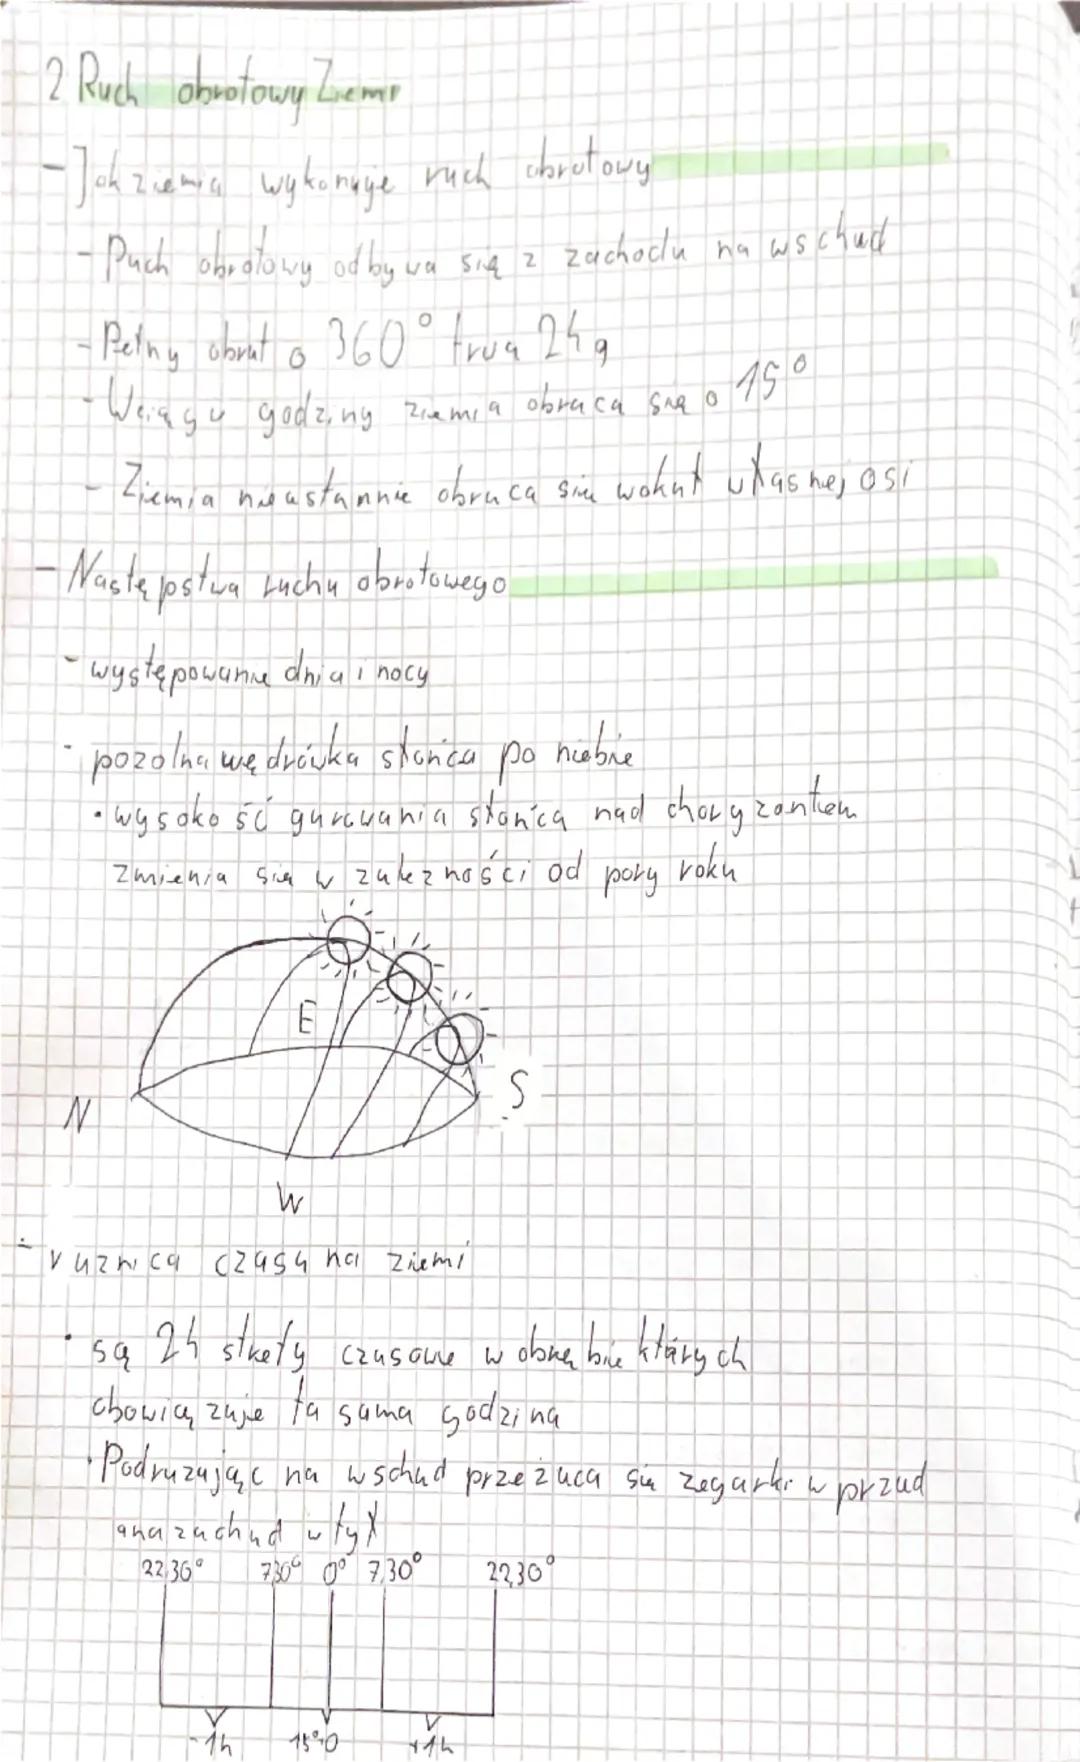 2 Ruch obrotowy Ziemi
- Jak ziemia wykonuje ruch obrotowy
- Ruch obrotowy odbywa się z zachodu na wschud
- Pełny obrut o 360° trwa 24g
- Wciągu godziny ziemia obraca się o 15°
- Ziemia nieustannie obraca sie wokuł własnej osi
- Następstwa ruchu obrotowego
- występowanie dnia i nocy
- pozolna wędrówka słońca po niebie
• wysokość gurowania słońca nad choryzontem
zmienia sie w zależności od pory roku
E
N
S
W
- ruznica czasu na ziemi
• są 24 strefy czasowe w obrębie których
obowiązuje ta sama godzina
• Podruzując na wschud przeżuca sie zegarki w przud
a na zachud w tył
22,30° 7,30° 0° 7,30° 22,30°
-1h 15° 0 +1h